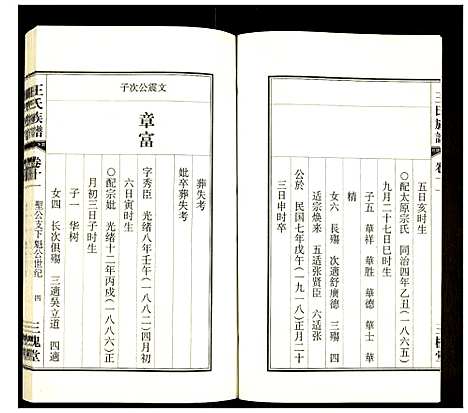 五日亥时生
○配太原宗氏 同治四年乙丑（一八六五）
九月二十七日巳时生
子五 華祥 華胜 華德 華士 華
精
女六 長殤 次適舒廣德 三殤 四
适宗焕来 五适张賢臣 六适张
公於 民国七年戊午（一九一八）正月二十
三日申时卒
葬失考
妣卒葬失考
文震公次子
章富
字秀臣 光绪八年壬午（一八八二）四月初
六日寅时生
○配宗妣 光绪十二年丙戌（一八八六）正
月初三日子时生
子一 华树
女四 长次俱殤 三適吴立道 四適
王氏族譜
卷十一
聖公支下魁公世纪
四
三槐堂